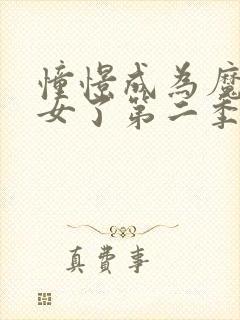 憧憬成为魔
女了第二季
真费事